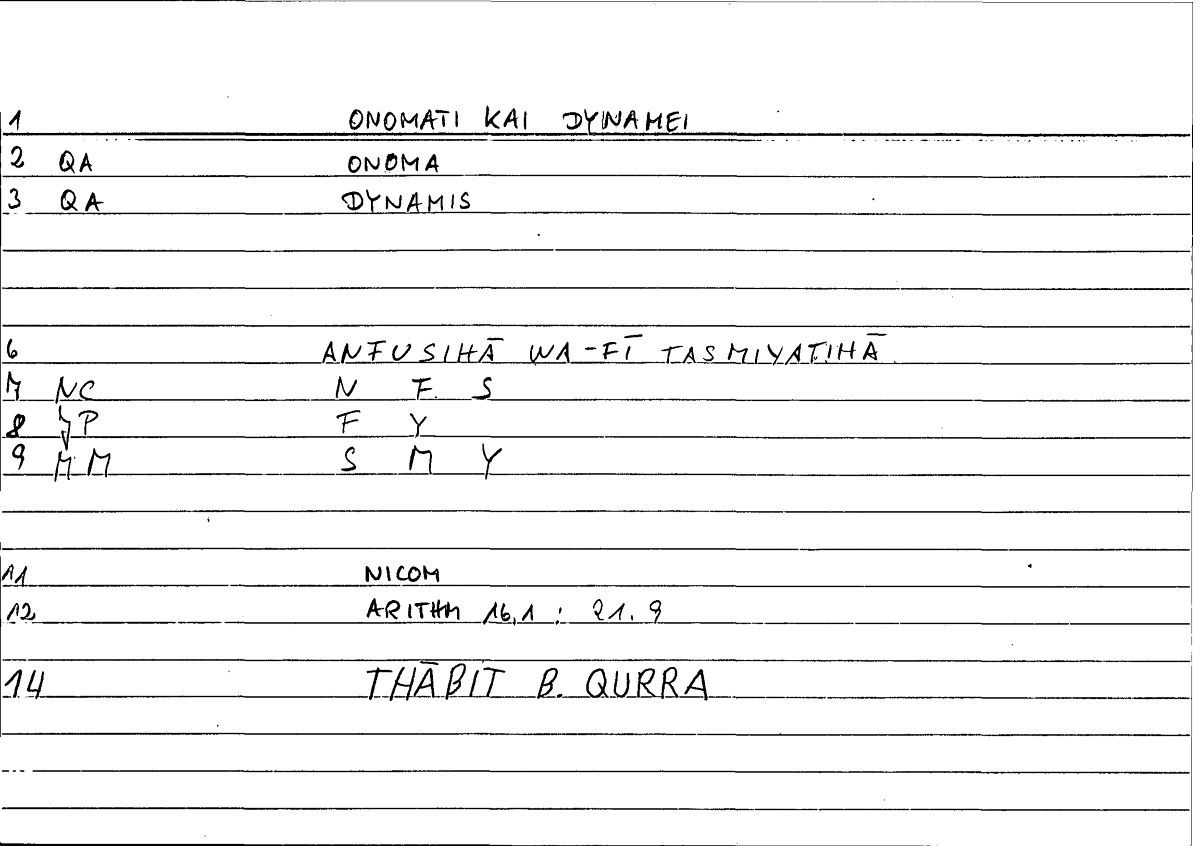 1 ONOMATI KAI DYNAMEI
2 QA ONOMA
3 QA DYNAMIS
6 ANFUSIHĀ WA-FĪ TASMIYATIHĀ
7 NC N F S
8 P F Y
9 MM S M Y
11 NICOM
12 ARITHM 16,1 : 21.9
14 THĀBIT B. QURRA